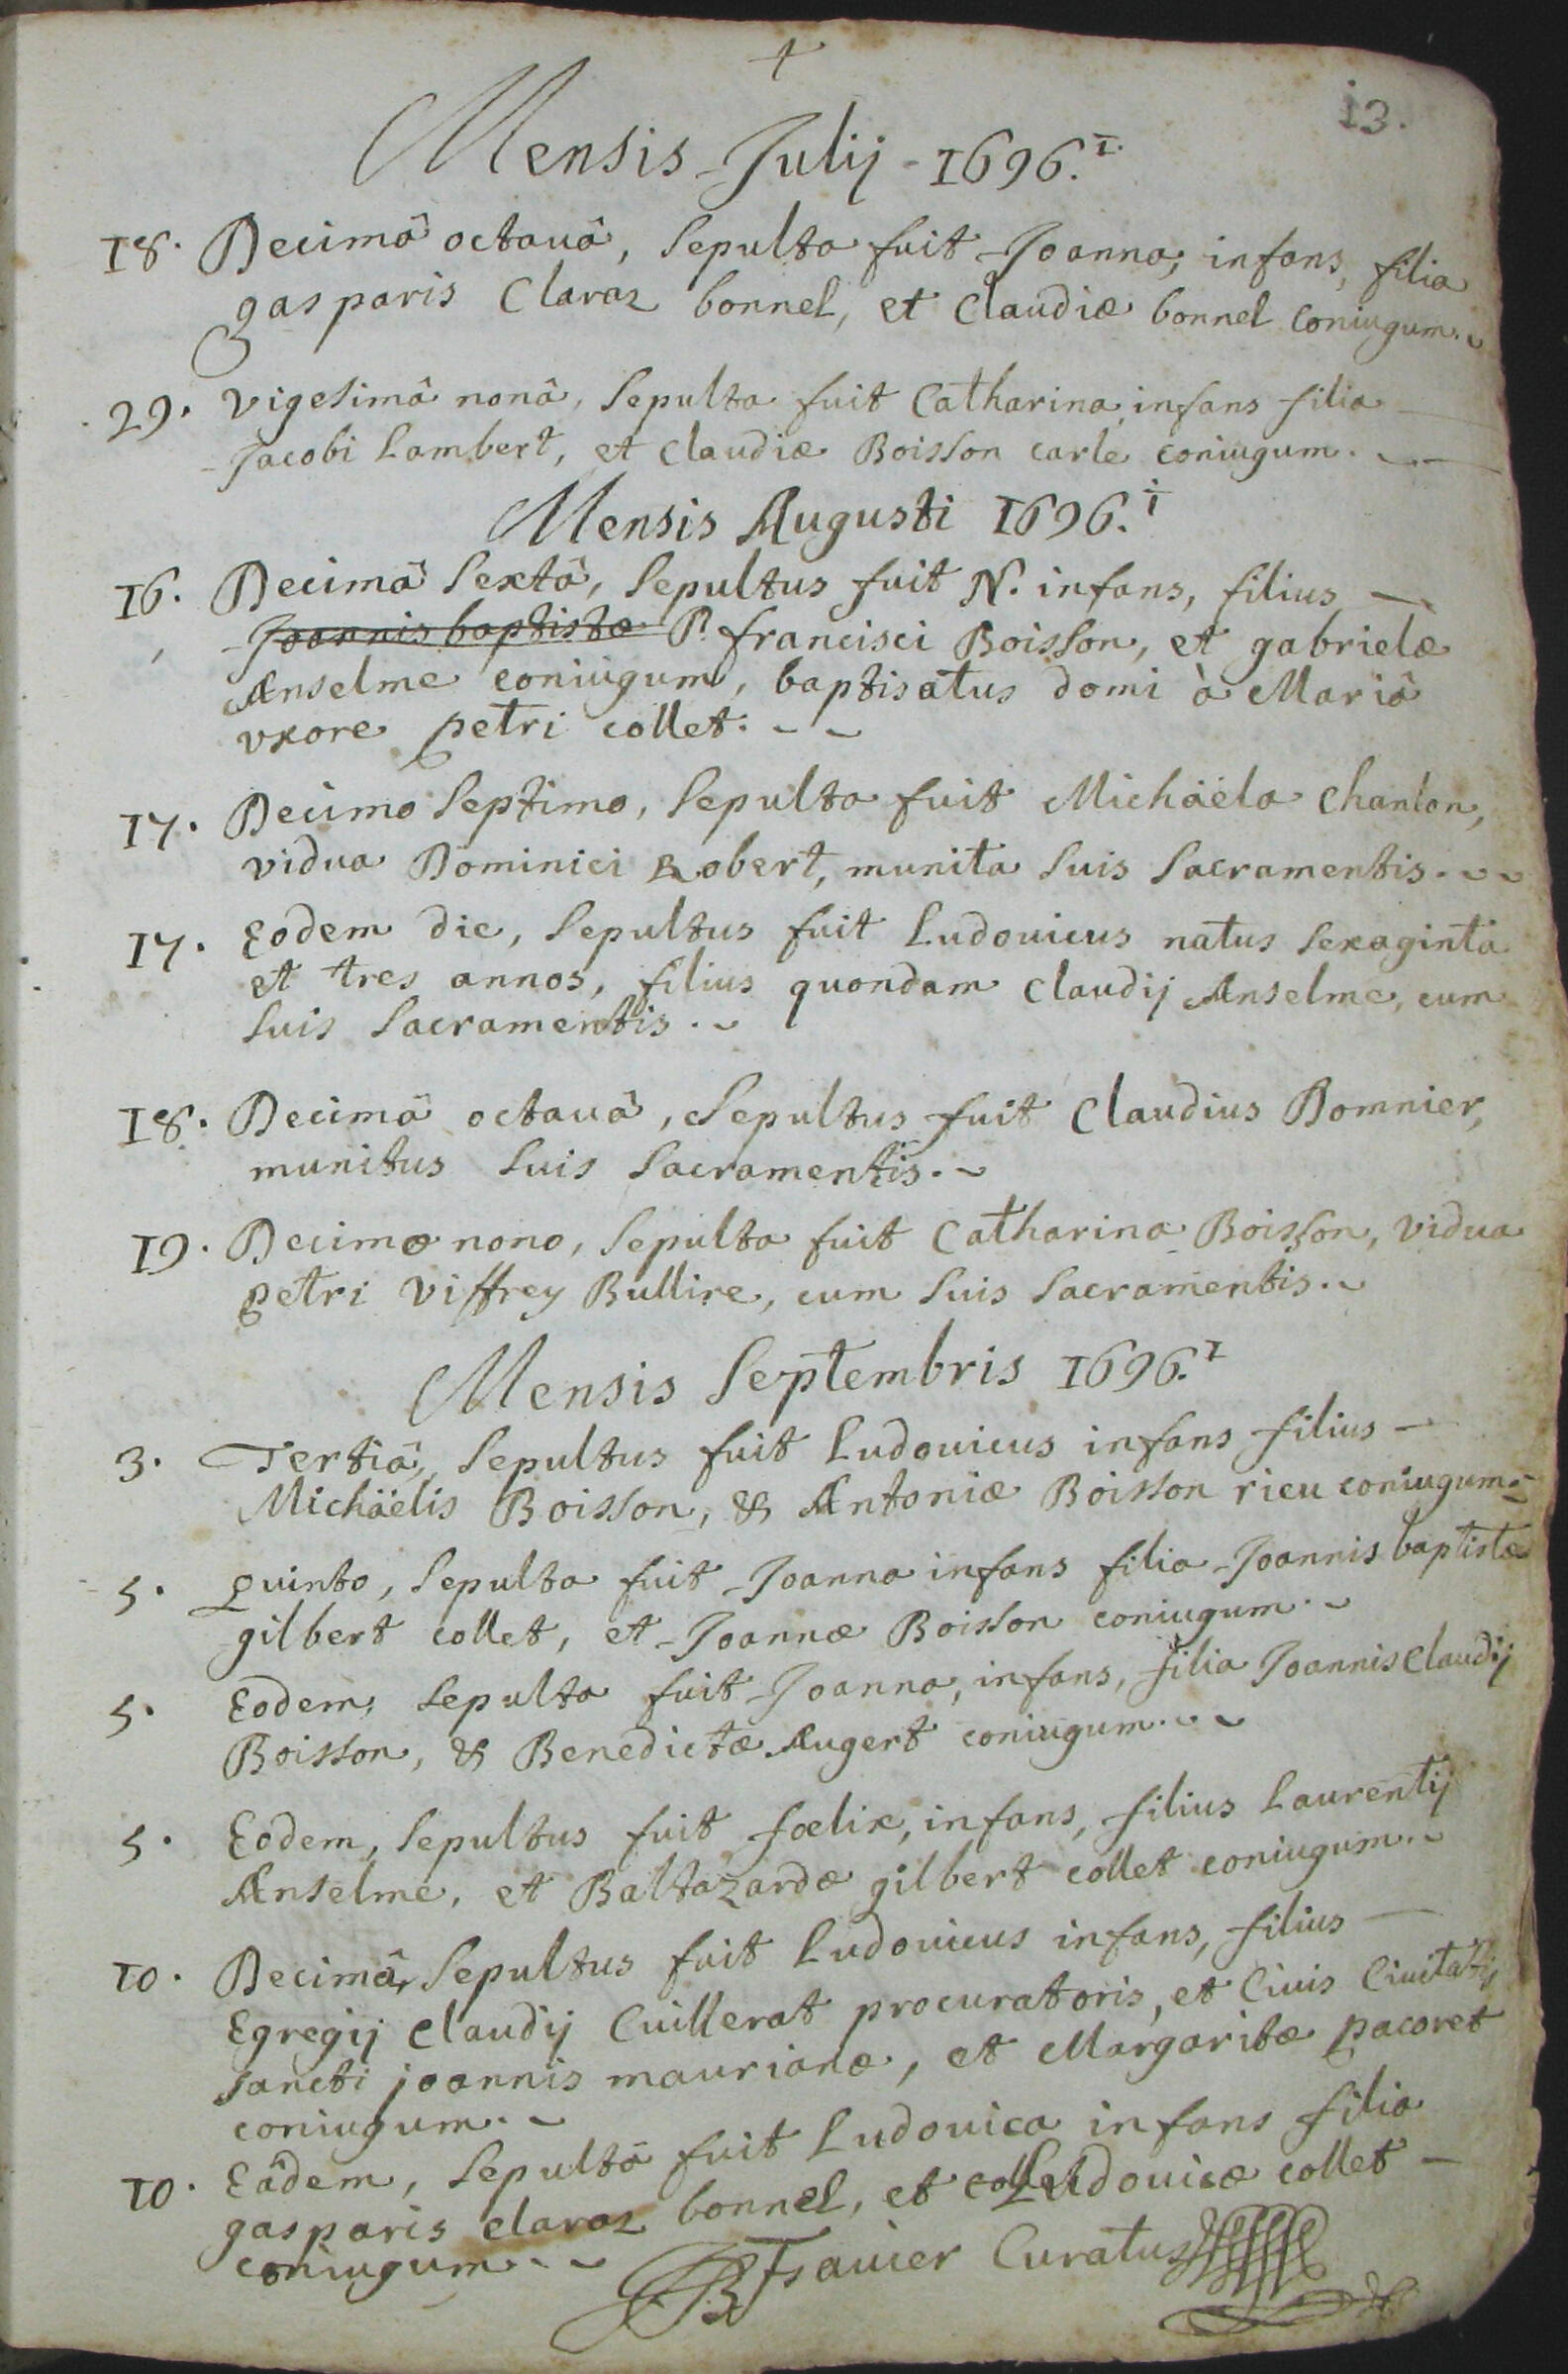 +
13.
Mensis Julij - 1696.I.
18. Decimâ octauâ, Sepulta fuit Joanna, infans, filia
gasparis Claraz bonnel, et Claudiæ bonnel Coniugum.
29. vigesimâ nonâ, Sepulta fuit Catharina infans filia
Jacobi Lambert, et claudiæ Boisson carle coniugum.
Mensis Augusti 1696.i
16. Decimâ Sextâ, Sepultus fuit N. infans, filius
Joannis baptistæ P. francisci Boisson, et gabrielæ
Anselme coniugum, baptisatus domi à Mariâ
vxore petri collet.
17. Decimo Septimo, Sepulta fuit Michäela Chanlon,
vidua Dominici Robert, munita suis Sacramentis.
17. Eodem die, Sepultus fuit Ludouicus natus sexaginta
et tres annos, filius quondam Claudij Anselme, cum
suis Sacramentis.
18. Decimâ octauâ, Sepultus fuit Claudius Domnier,
munitus suis Sacramentis.
19. Decimo nono, Sepulta fuit Catharina Boisson, vidua
petri Viffrey Bullire, cum suis Sacramentis.
Mensis Septembris 1696.I
3. Tertiâ, Sepultus fuit Ludouicus infans filius
Michäelis Boisson, & Antoniæ Boisson rieu coniugum.
5. Quinto, Sepulta fuit Joanna infans filia Joannis baptistæ
gilbert collet, et Joannæ Boisson coniugum.
5. Eodem, Sepulta fuit Joanna, infans, filia Joannis Claudij
Boisson, & Benedictæ Augert coniugum.
5. Eodem, Sepultus fuit foelix, infans, filius Laurentij
Anselme, et Baltazardæ gilbert collet coniugum.
10. Decimâ, Sepultus fuit Ludouicus infans, filius
Egregij Claudij Cuillerat procuratoris, et Ciuis Ciuitatis
sancti joannis maurianæ, et Margaritæ pacoret
coniugum.
10. Eâdem, Sepulta fuit Ludouica infans filia
gasparis claraz bonnel, et Ludouicæ collet
coniugum.
Curatus